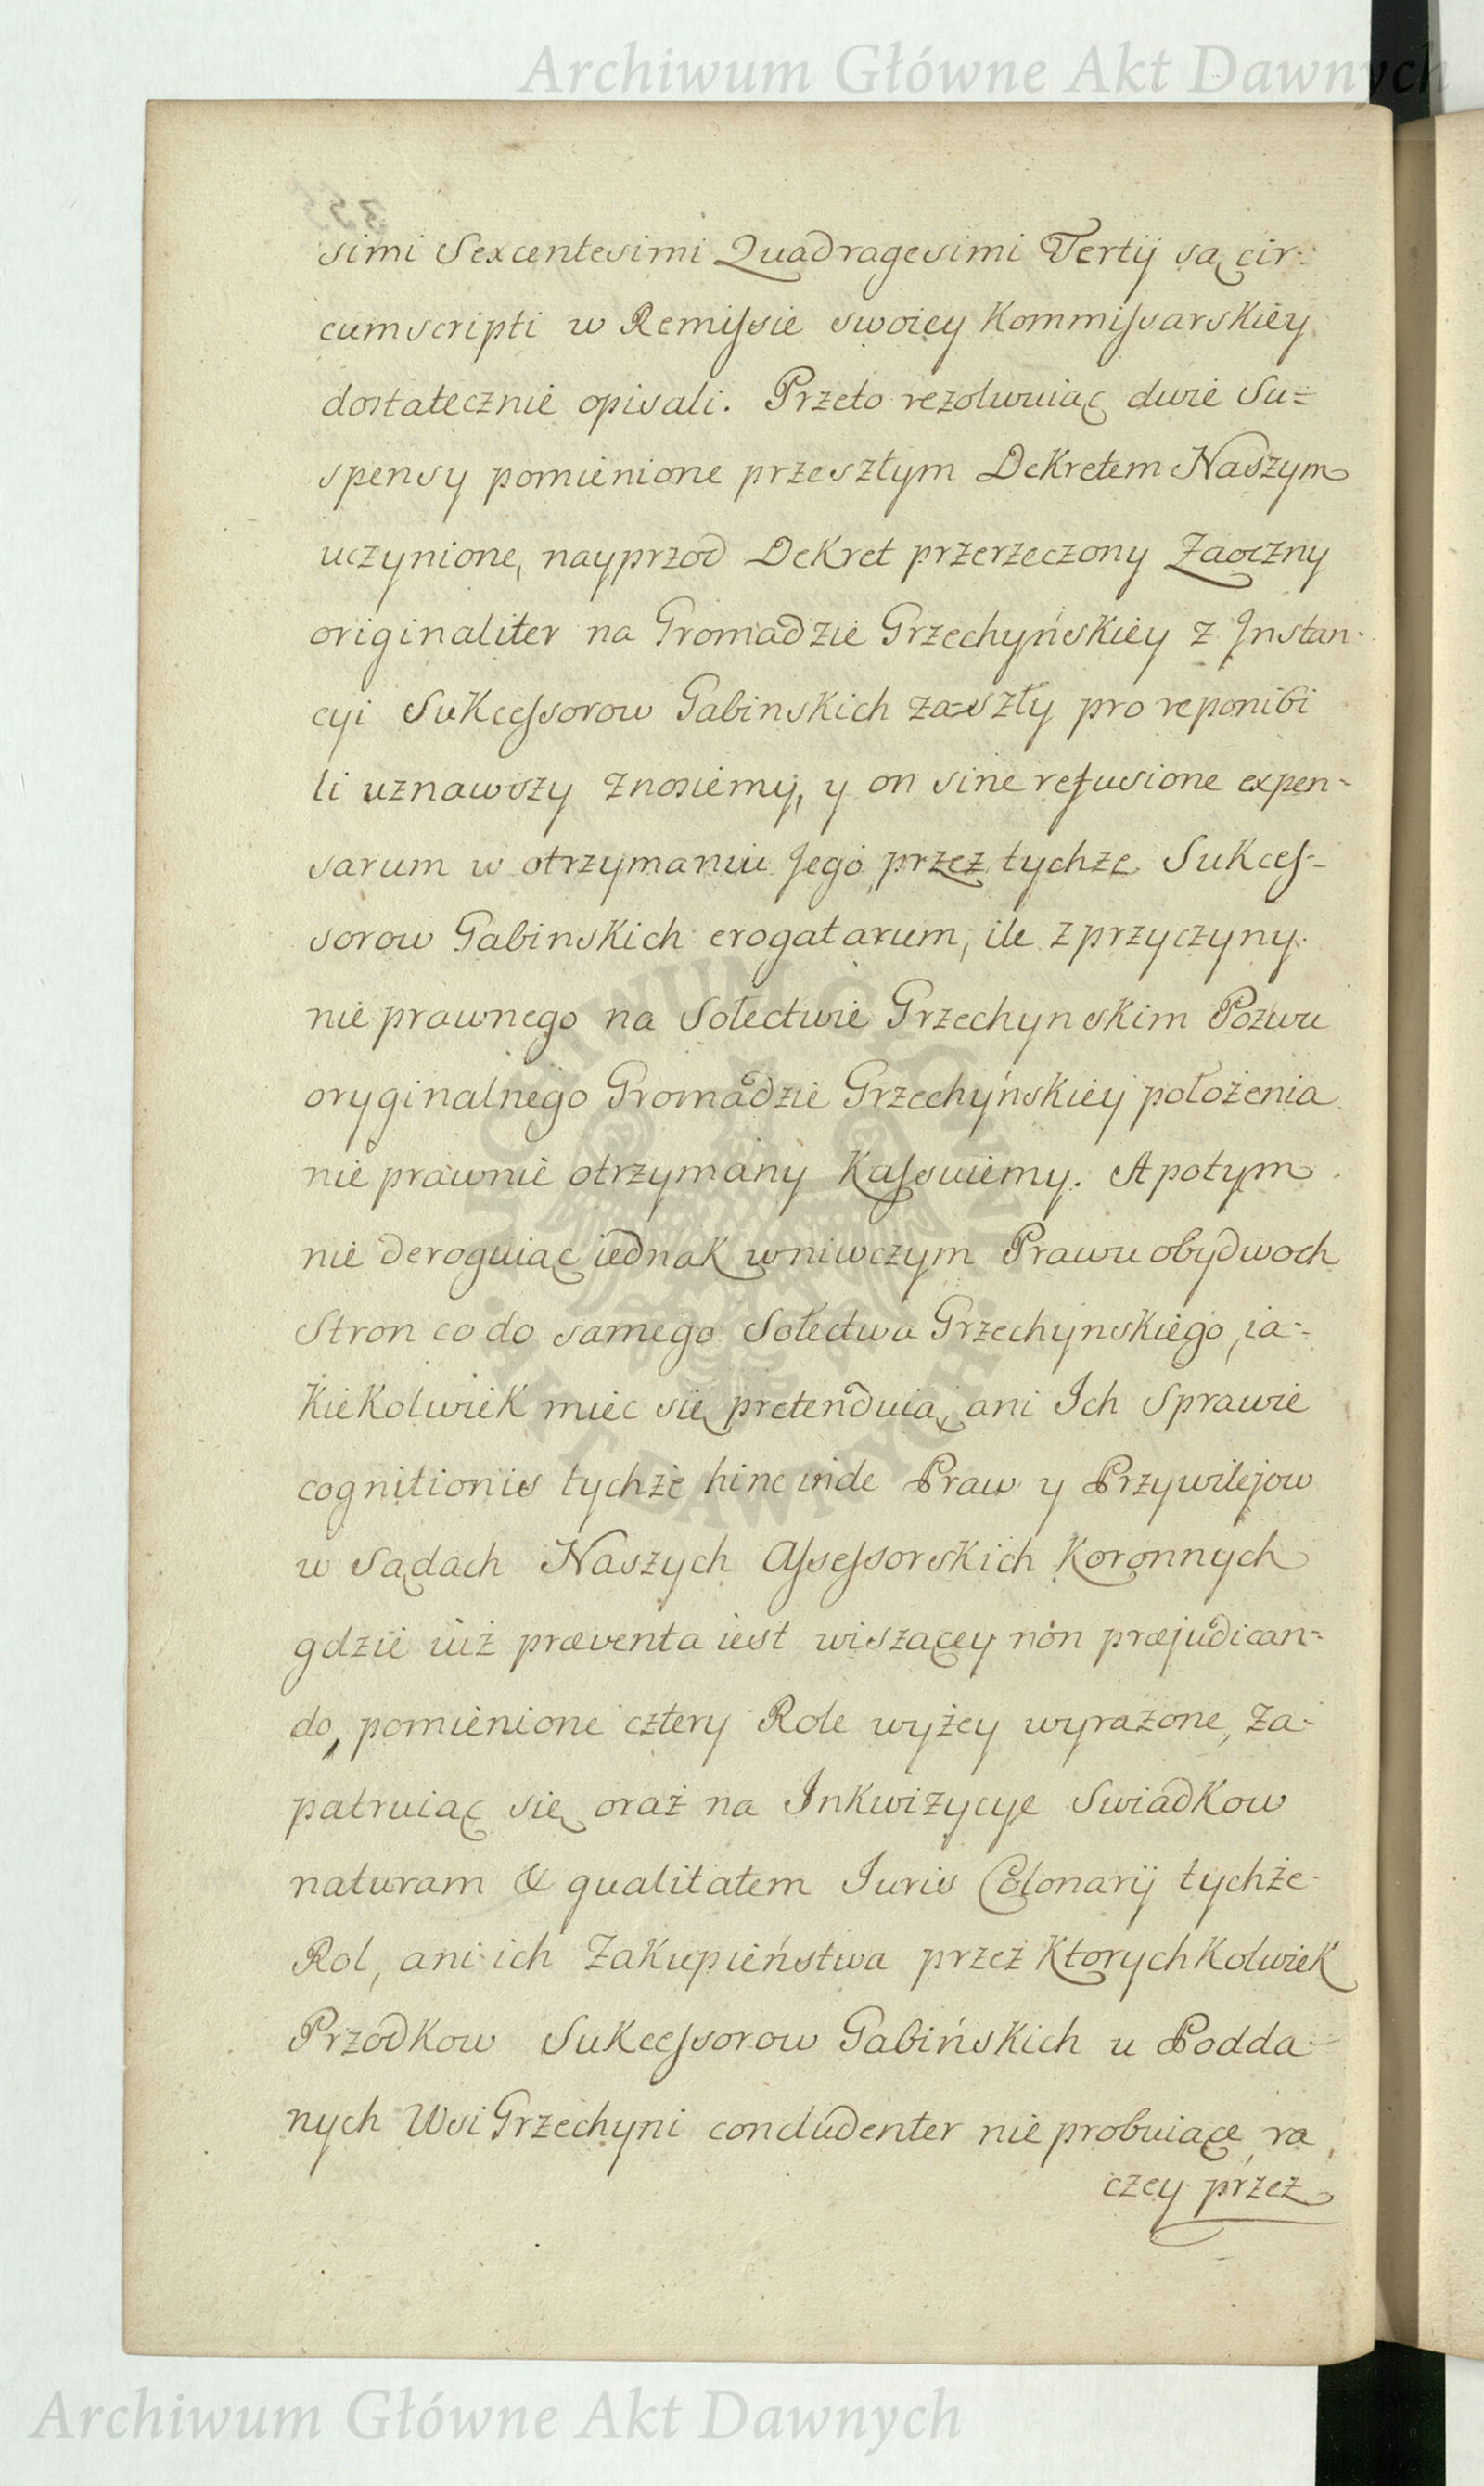 Archiwum Główne Akt Dawnych
simi Sexcentesimi Quadragesimi Tertij są cir-
cumscripti w Remissie swoiey Kommissarskiey
dostatecznie opisali. Przeto rezolwuiąc dwie Su=
spensy pomienione przeszłym Dekretem Naszym
uczynione, nayprzod Dekret przerzeczony Zaoczny
originaliter na Gromadzie Grzechyńskiey z Instan-
cyi Sukcessorow Gabinskich zaszły pro reponibi
li uznawszy znosiemy, y on sine refusione expen-
sarum w otrzymaniu Jego przez tychże Sukces-
sorow Gabinskich erogatarum, ile z przyczyny
nie prawnego na Sołectwie Grzechynskim Pozwu
oryginalnego Gromadzie Grzechyńskiey położenia
nie prawnie otrzymany Kassuiemy. A potym
nie deroguiąc iednak wniwczym Prawu obydwoch
Stron co do samego Sołectwa Grzechynskiego, ia-
kiekolwiek miec się pretenduią, ani Ich Sprawie
cognitionis tychże hinc inde Praw y Przywilejow
w Sądach Naszych Assessorskich Koronnych
gdzie iuż præventa iest wiszącey non præjudican-
do, pomienione cztery Role wyżey wyrażone, za-
patruiąc się oraż na Inkwizycye Swiadkow
naturam & qualitatem Iuris Colonarij tychże
Rol, ani ich Zakupieństwa przez ktorychkolwiek
Przodkow Sukcessorow Gabińskich u Podda-
nych Wsi Grzechyni concludenter nie probuiące, ra
czey przez
Archiwum Główne Akt Dawnych